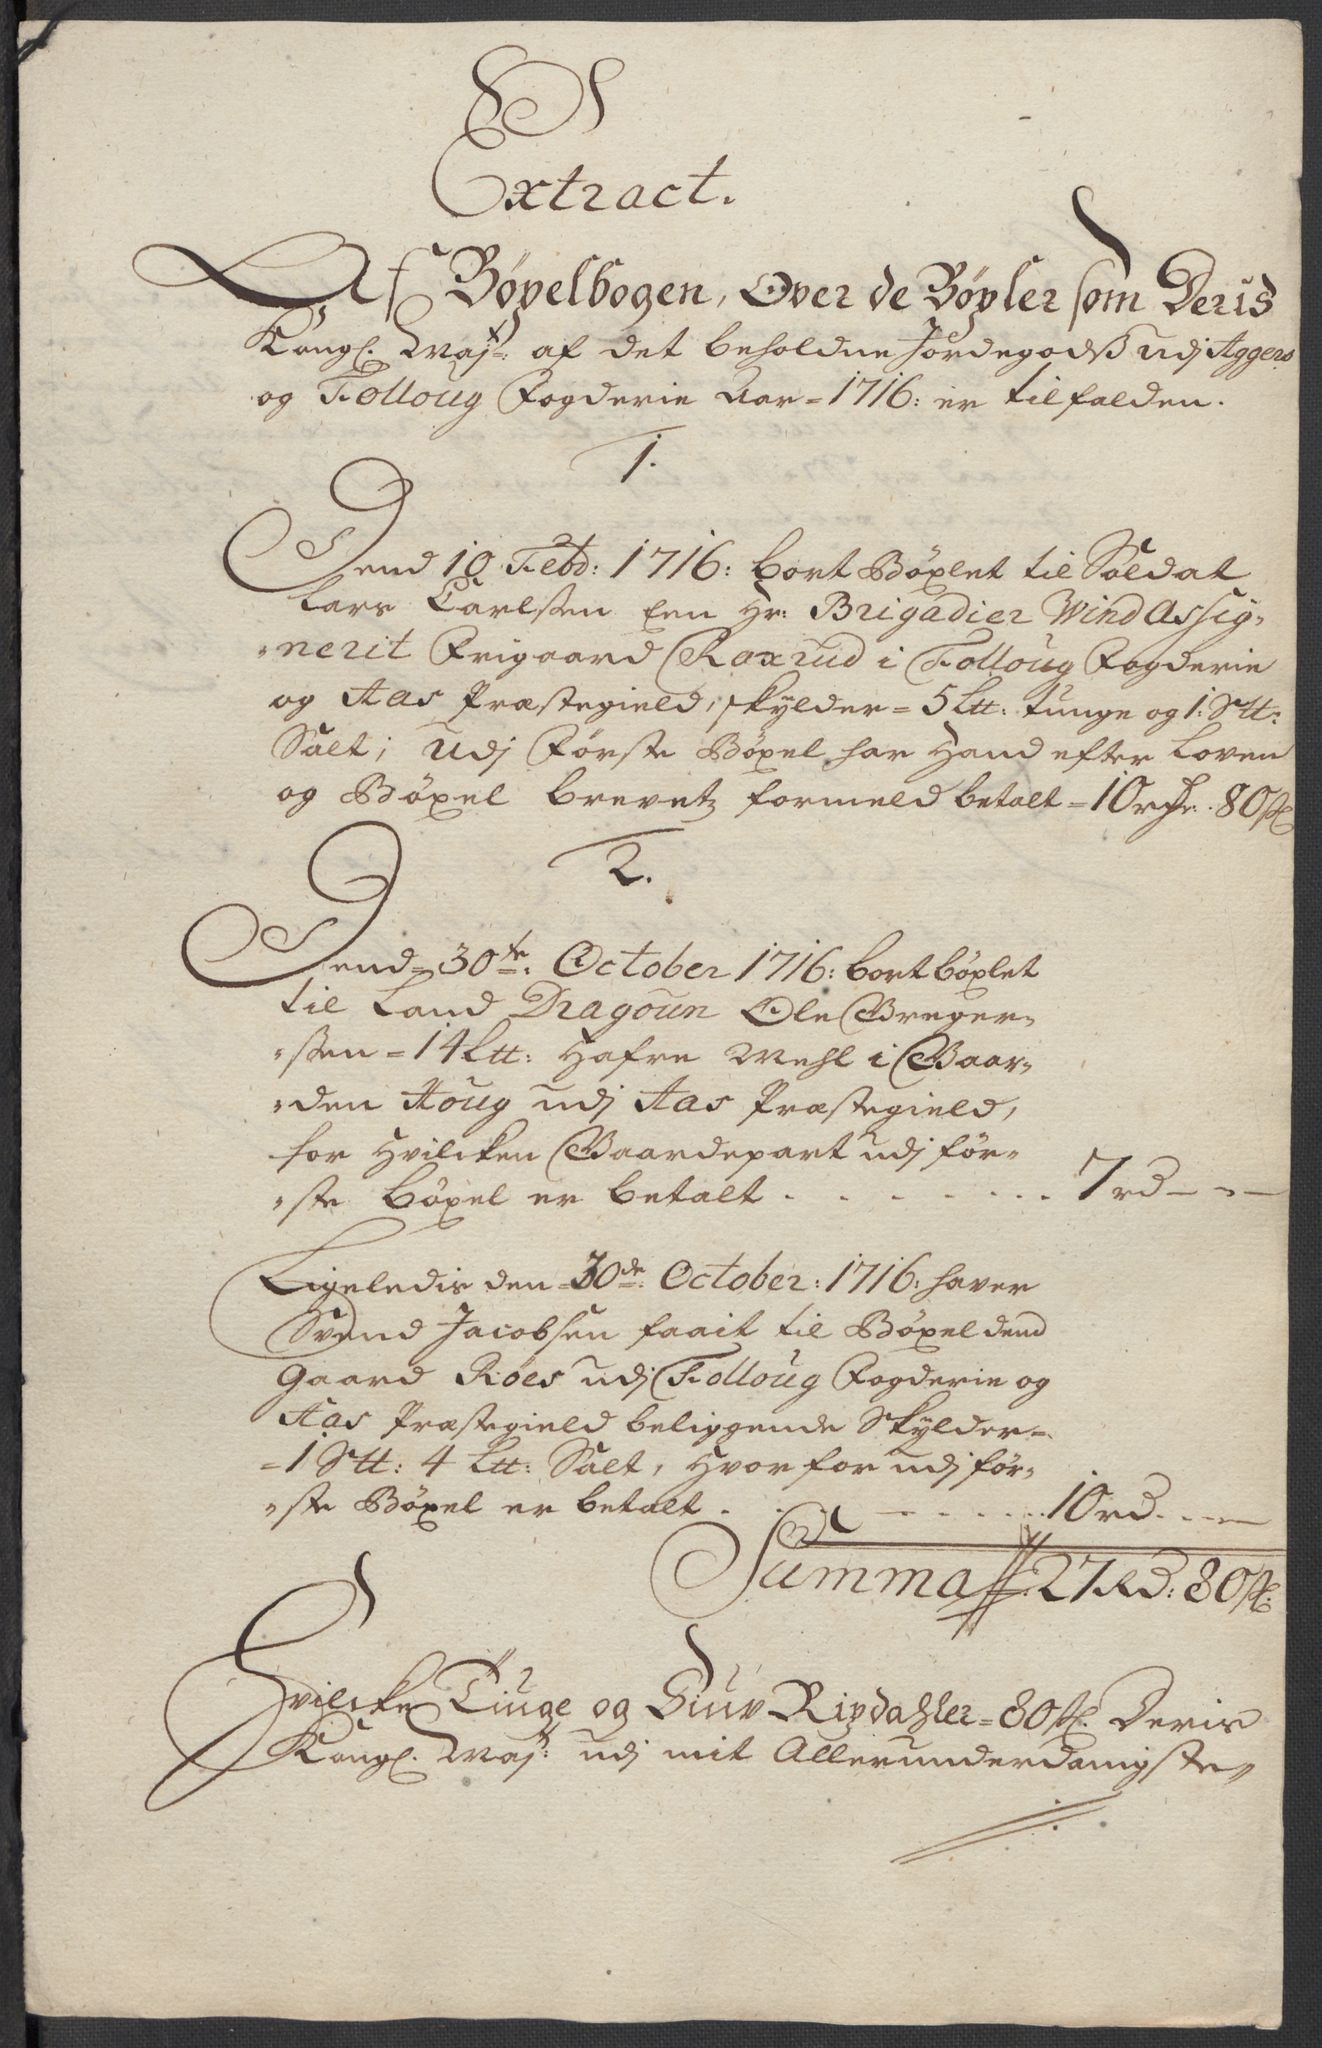 Extract.
Af Böxelbogen, Over de Böxler som Deris
Kongl. Mayt: af det beholdne Jordegodß udj Aggers
og Folloug Fogderie Aar = 1716: er tilfalden.
1.
Dend 10 Febr: 1716: bort Böxlet til Soldat
Lars Carlsen Een Hr: Brigadier Wind Assig„
„nerit Frigaard Roxrud i Folloug Fogderie
og Aas Præstegield, skylder = 5 Ltt: tunge og 1: Stt:
Salt; Udj Förste Böxel har Hand efter Loven
og Böxel brevetz formeld betalt = 10 rdr. 80 s
2.
Dend = 30te: October 1716: bort böxlet
til Land Dragoun Ole Greger„
„ssen = 14 Ltt: Hafre Mehl i Gaar„
„den Houg udj Aas Præstegield,
for Hvilcken Gaardepart udj för„
„ste böxel er betalt . . . . . . . . 7 rd - „ -
Ligeledis den = 30de: October: 1716: haver
Svend Jacobsen faait til Böxel dend
Gaard Röes udj Folloug Fogderie og
Aas Præstegield beliggende Skylder =
= 1 Stt: 4 Ltt: Salt, Hvor for udj för„
„ste Böxel er betalt . . . . . . . 10 rd - - -
Summa 27 Rd: 80 s.
Hvilcke Tiuge og Siuv Rixdahler = 80 s. Deris
Kongl. Mayt: udj mit Allerunderdanigste„